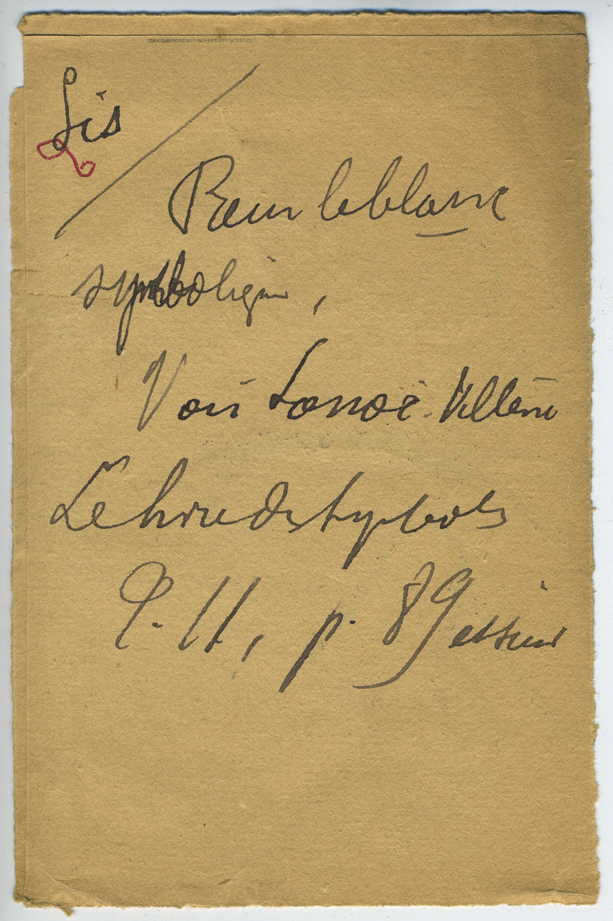 Lis
Pour le blanc
symbolique,
Voir Lanoë-Villène
Le livre des symboles
T. II, p. 89 et suiv